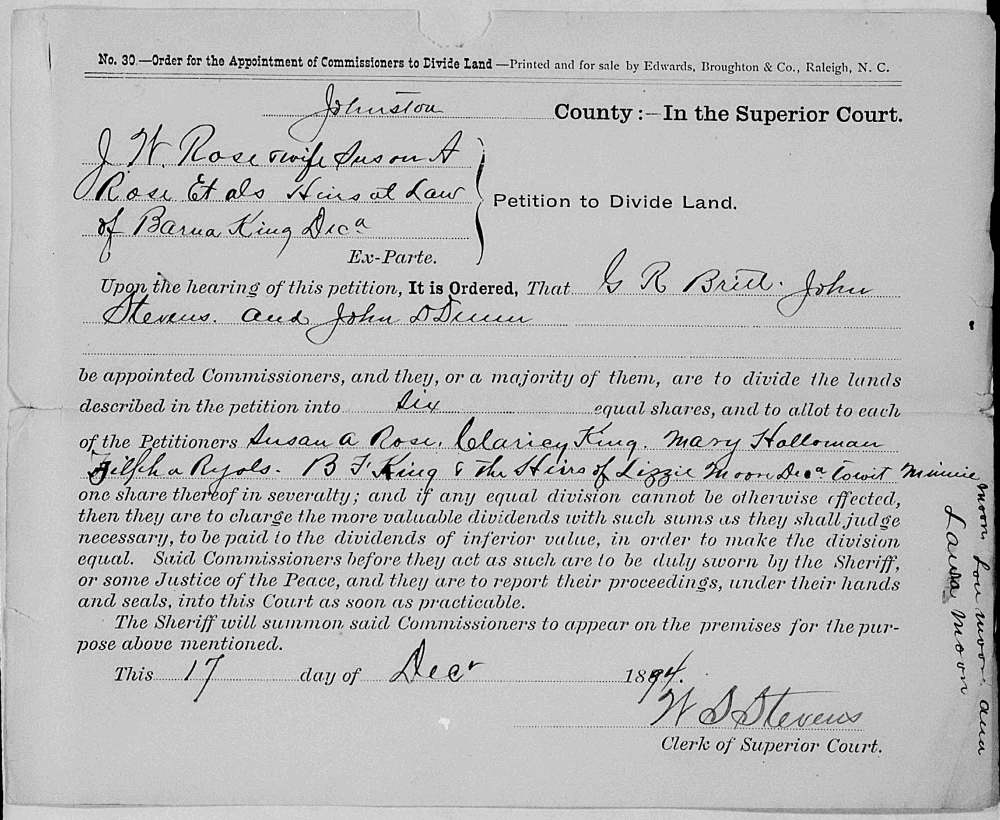 No. 30.—Order for the Appointment of Commissioners to Divide Land —Printed and for sale by Edwards, Broughton & Co., Raleigh, N. C.
Johnston County:—In the Superior Court.
J. W. Rose & wife Suson A
Rose Et als Heirs at Law
of Barna King Decd
Petition to Divide Land.
Ex-Parte.
Upon the hearing of this petition, It is Ordered, That G R Britt. John
Stevens. and John D
be appointed Commissioners, and they, or a majority of them, are to divide the lands
described in the petition into Six equal shares, and to allot to each
of the Petitioners Susan A Rose, Claricy King. Mary Holloman
B F King & the Heirs of Lizzie Moon Decd towit Minnie
Moon Lou Moon and
Laura Moon
one share thereof in severalty; and if any equal division cannot be otherwise effected,
then they are to charge the more valuable dividends with such sums as they shall judge
necessary, to be paid to the dividends of inferior value, in order to make the division
equal. Said Commissioners before they act as such are to be duly sworn by the Sheriff,
or some Justice of the Peace, and they are to report their proceedings, under their hands
and seals, into this Court as soon as practicable.
The Sheriff will summon said Commissioners to appear on the premises for the pur-
pose above mentioned.
This 17 day of Decr 1894.
W S Stevens
Clerk of Superior Court.